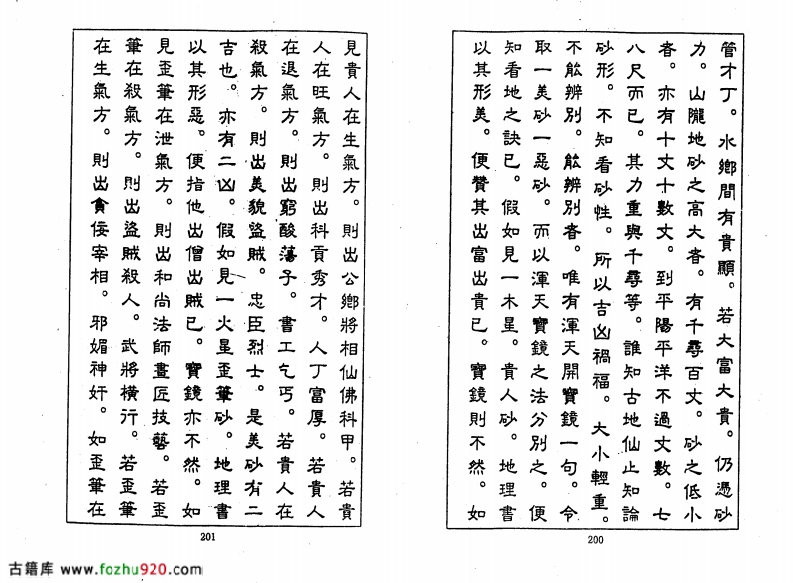 管才丁。水鄉間有貴顯。若大富大貴。仍憑砂
力。山隴地砂之高大者。有千尋百丈。砂之低小
者。亦有十丈十數丈。到平陽平洋不過丈數。七
八尺而已。其力重與千尋等。誰知古地仙止知論
砂形。不知看砂性。所以吉凶禍福。大小輕重。
不能辨別。能辨別者。唯有渾天開寶鏡一句。令
取一美砂一惡砂。而以渾天寶鏡之法分別之。便
知看地之訣已。假如見一木星。貴人砂。地理書
以其形美。便贊其出富出貴已。寶鏡則不然。如
200
見貴人在生氣方。則出公鄉將相仙佛科甲。若貴
人在旺氣方。則出科貢秀才。人丁富厚。若貴人
在退氣方。則出窮酸蕩子。書工乞丐。若貴人在
殺氣方。則出美貌盜賊。忠臣烈士。是美砂有二
吉也。亦有二凶。假如見一火星歪筆砂。地理書
以其形惡。便指他出僧出賊已。寶鏡亦不然。如
見歪筆在泄氣方。則出和尚法師畫匠技藝。若歪
筆在殺氣方。則出盜賊殺人。武將橫行。若歪筆
在生氣方。則出貪佞宰相。邪媚神奸。如歪筆在
201
古籍库 www.fozhu920.com